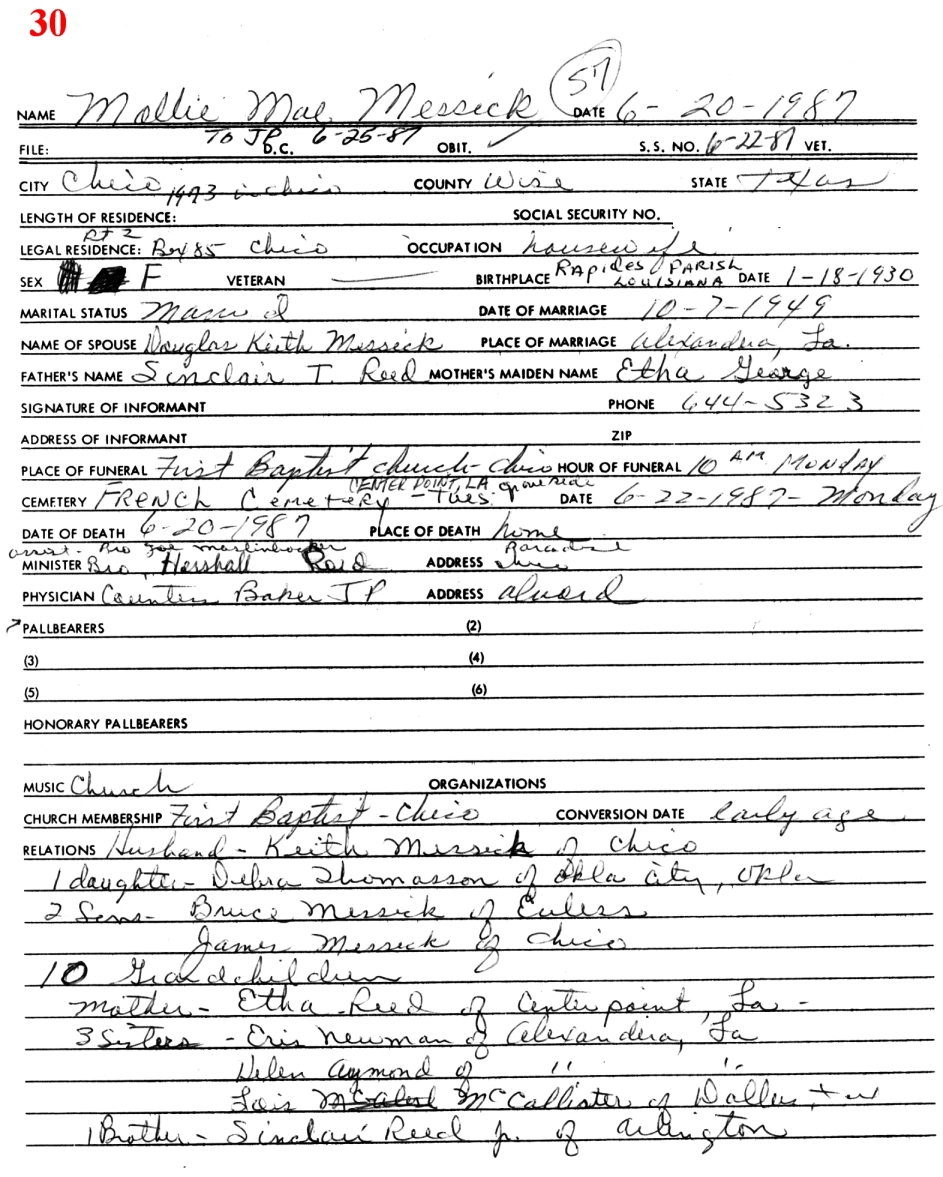 30
NAME Mollie Mae Messick 57 DATE 6-20-1987
FILE: To JP D.C. 6-25-87 OBIT. ✓ S.S. NO. 6-22-87 VET.
CITY Chico 1973 in chico COUNTY Wise STATE Texas
LENGTH OF RESIDENCE: SOCIAL SECURITY NO.
Rt 2
LEGAL RESIDENCE: Box 85 Chico OCCUPATION housewife
SEX F VETERAN — BIRTHPLACE RAPIDES PARISH LOUISIANA DATE 1-18-1930
MARITAL STATUS Married DATE OF MARRIAGE 10-7-1949
NAME OF SPOUSE Douglas Keith Messick PLACE OF MARRIAGE Alexandria, La.
FATHER'S NAME Sinclair T. Reed MOTHER'S MAIDEN NAME Etha George
SIGNATURE OF INFORMANT PHONE 644-5323
ADDRESS OF INFORMANT ZIP
PLACE OF FUNERAL First Baptist church - Chico HOUR OF FUNERAL 10 AM MONDAY
CENTER POINT, LA graveside
CEMETERY FRENCH Cemetery - Tues. DATE 6-22-1987 - Monday
DATE OF DEATH 6-20-1987 PLACE OF DEATH home
assist. Bro Joe Paradise
MINISTER Bro. Hershall ADDRESS Chico
PHYSICIAN Baker JP ADDRESS alvord
PALLBEARERS (2)
(3) (4)
(5) (6)
HONORARY PALLBEARERS
MUSIC Church ORGANIZATIONS
CHURCH MEMBERSHIP First Baptist - Chico CONVERSION DATE early age
RELATIONS Husband - Keith Messick of Chico
1 daughter - Debra Thomasson of Okla City, Okla
2 Sons - Bruce Messick of Euless
James Messick of Chico
10 Grandchildren
Mother - Etha Reed of Centerpoint, La -
3 Sisters - Eris Newman of Alexandria, La
Helen Aymond of " "
Lois McCallister of Dallas, Tex
1 Brother - Sinclair Reed Jr. of Arlington